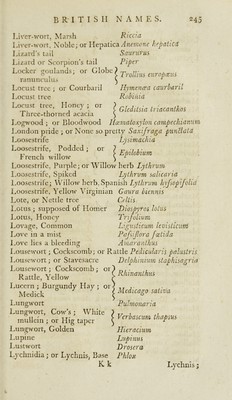 BRITISH NAMES. 245
Liver-wort, Marsh Riccia
Liver-wort, Noble; or Hepatica Anemone hepatica
Lizard's tail Saururus
Lizard or Scorpion's tail Piper
Locker goulands; or Globe } Trollius europæus
ranunculus
Locust tree; or Courbaril Hymenæa courbaril
Locust tree Robinia
Locust tree, Honey; or } Gleditsia triacanthos
Three-thorned acacia
Logwood; or Bloodwood Hæmatoxylon campechianum
London pride; or None so pretty Saxifraga punctata
Loosestrife Lysimachia
Loosestrife, Podded; or } Epilobium
French willow
Loosestrife, Purple; or Willow herb Lythrum
Loosestrife, Spiked Lythrum salicaria
Loosestrife; Willow herb. Spanish Lythrum hyssopifolia
Loosestrife, Yellow Virginian Gaura biennis
Lote, or Nettle tree Celtis.
Lotus; supposed of Homer Diospyros lotus
Lotus, Honey Trifolium
Lovage, Common Ligusticum levisticum
Love in a mist Passiflora fœtida
Love lies a bleeding Amaranthus
Lousewort; Cockscomb; or Rattle Pedicularis palustris
Lousewort; or Stavesacre Delphinium staphisagria
Lousewort; Cockscomb; or } Rhinanthus
Rattle, Yellow
Lucern; Burgundy Hay; or } Medicago sativa
Medick
Lungwort Pulmonaria
Lungwort, Cow's; White } Verbascum thapsus
mullein; or Hig taper
Lungwort, Golden Hieracium
Lupine Lupinus
Lustwort Drosera
Lychnidia; or Lychnis, Base Phlox
K k Lychnis;